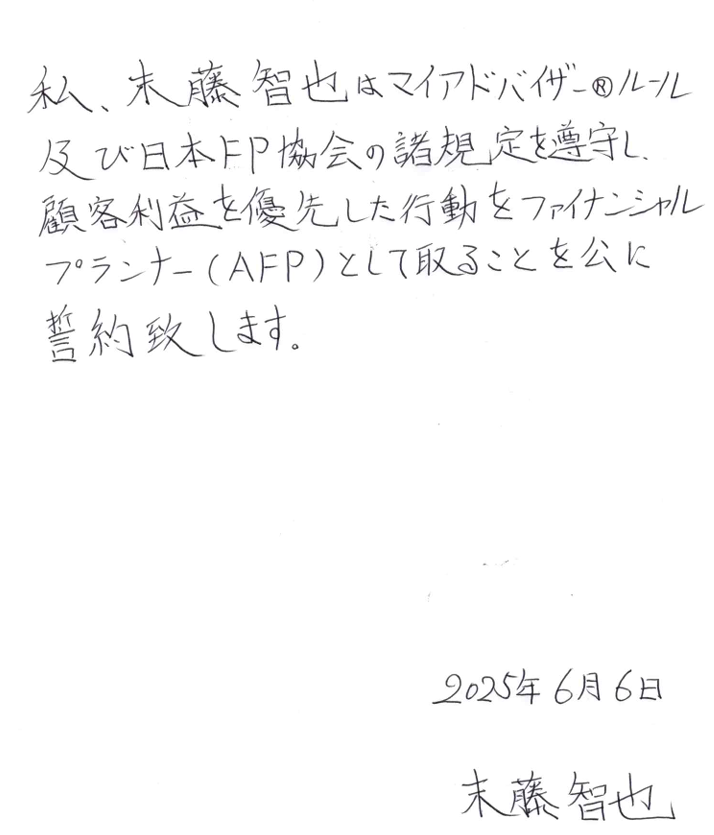 私、末藤智也はマイアドバイザー®ルール
及び日本FP協会の諸規定を遵守し、
顧客利益を優先した行動をファイナンシャル
プランナー(AFP)として取ることを公に
誓約致します。
2025年6月6日
末藤智也